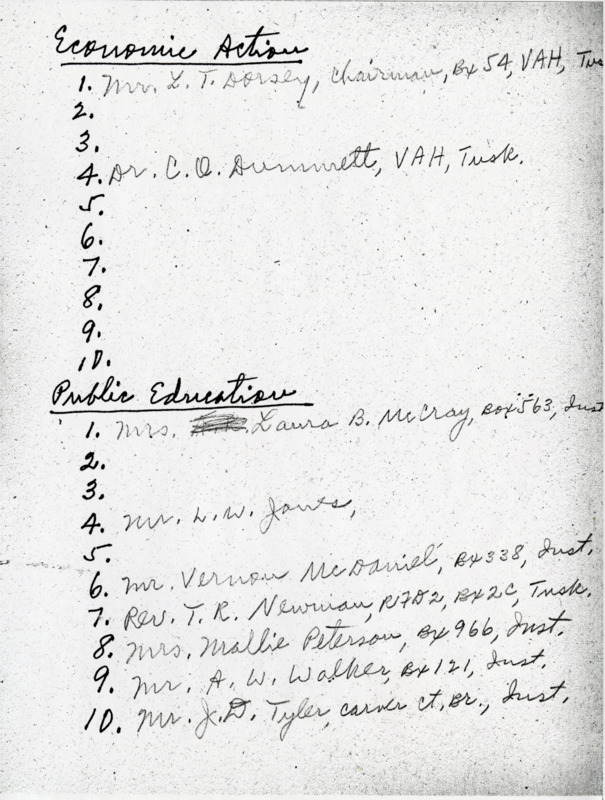 Economic Action
1. Mr. L. T. Dorsey, Chairman, Bx 54, VAH, Tus
2.
3.
4. Dr. C. O. Dummett, VAH, Tusk.
5.
6.
7.
8.
9.
10.
Public Education
1. Mrs. Laura B. McCray, Box 563, Inst
2.
3.
4. Mr. L. W. Jones,
5.
6. Mr. Vernon McDaniel, Bx 338, Inst.
7. Rev. T. R. Newman, R7D2, Bx 2C, Tusk.
8. Mrs. Mallie Peterson, Bx 966, Inst.
9. Mr. A. W. Walker, Bx 121, Inst.
10. Mr. J. D. Tyler, Carver Ct. Br., Inst.